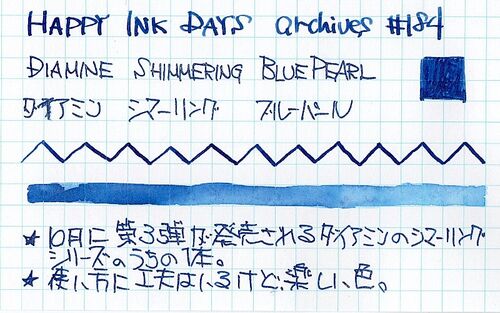 HAPPY INK DAYS archives #184
DIAMINE SHIMMERING BLUE PEARL
ダイアミン シマーリング ブルーパール
★ 10月に第3弾が発売されるダイアミンのシマーリング
シリーズのうちの1本。
★ 使い方に工夫はいるけど楽しい色。